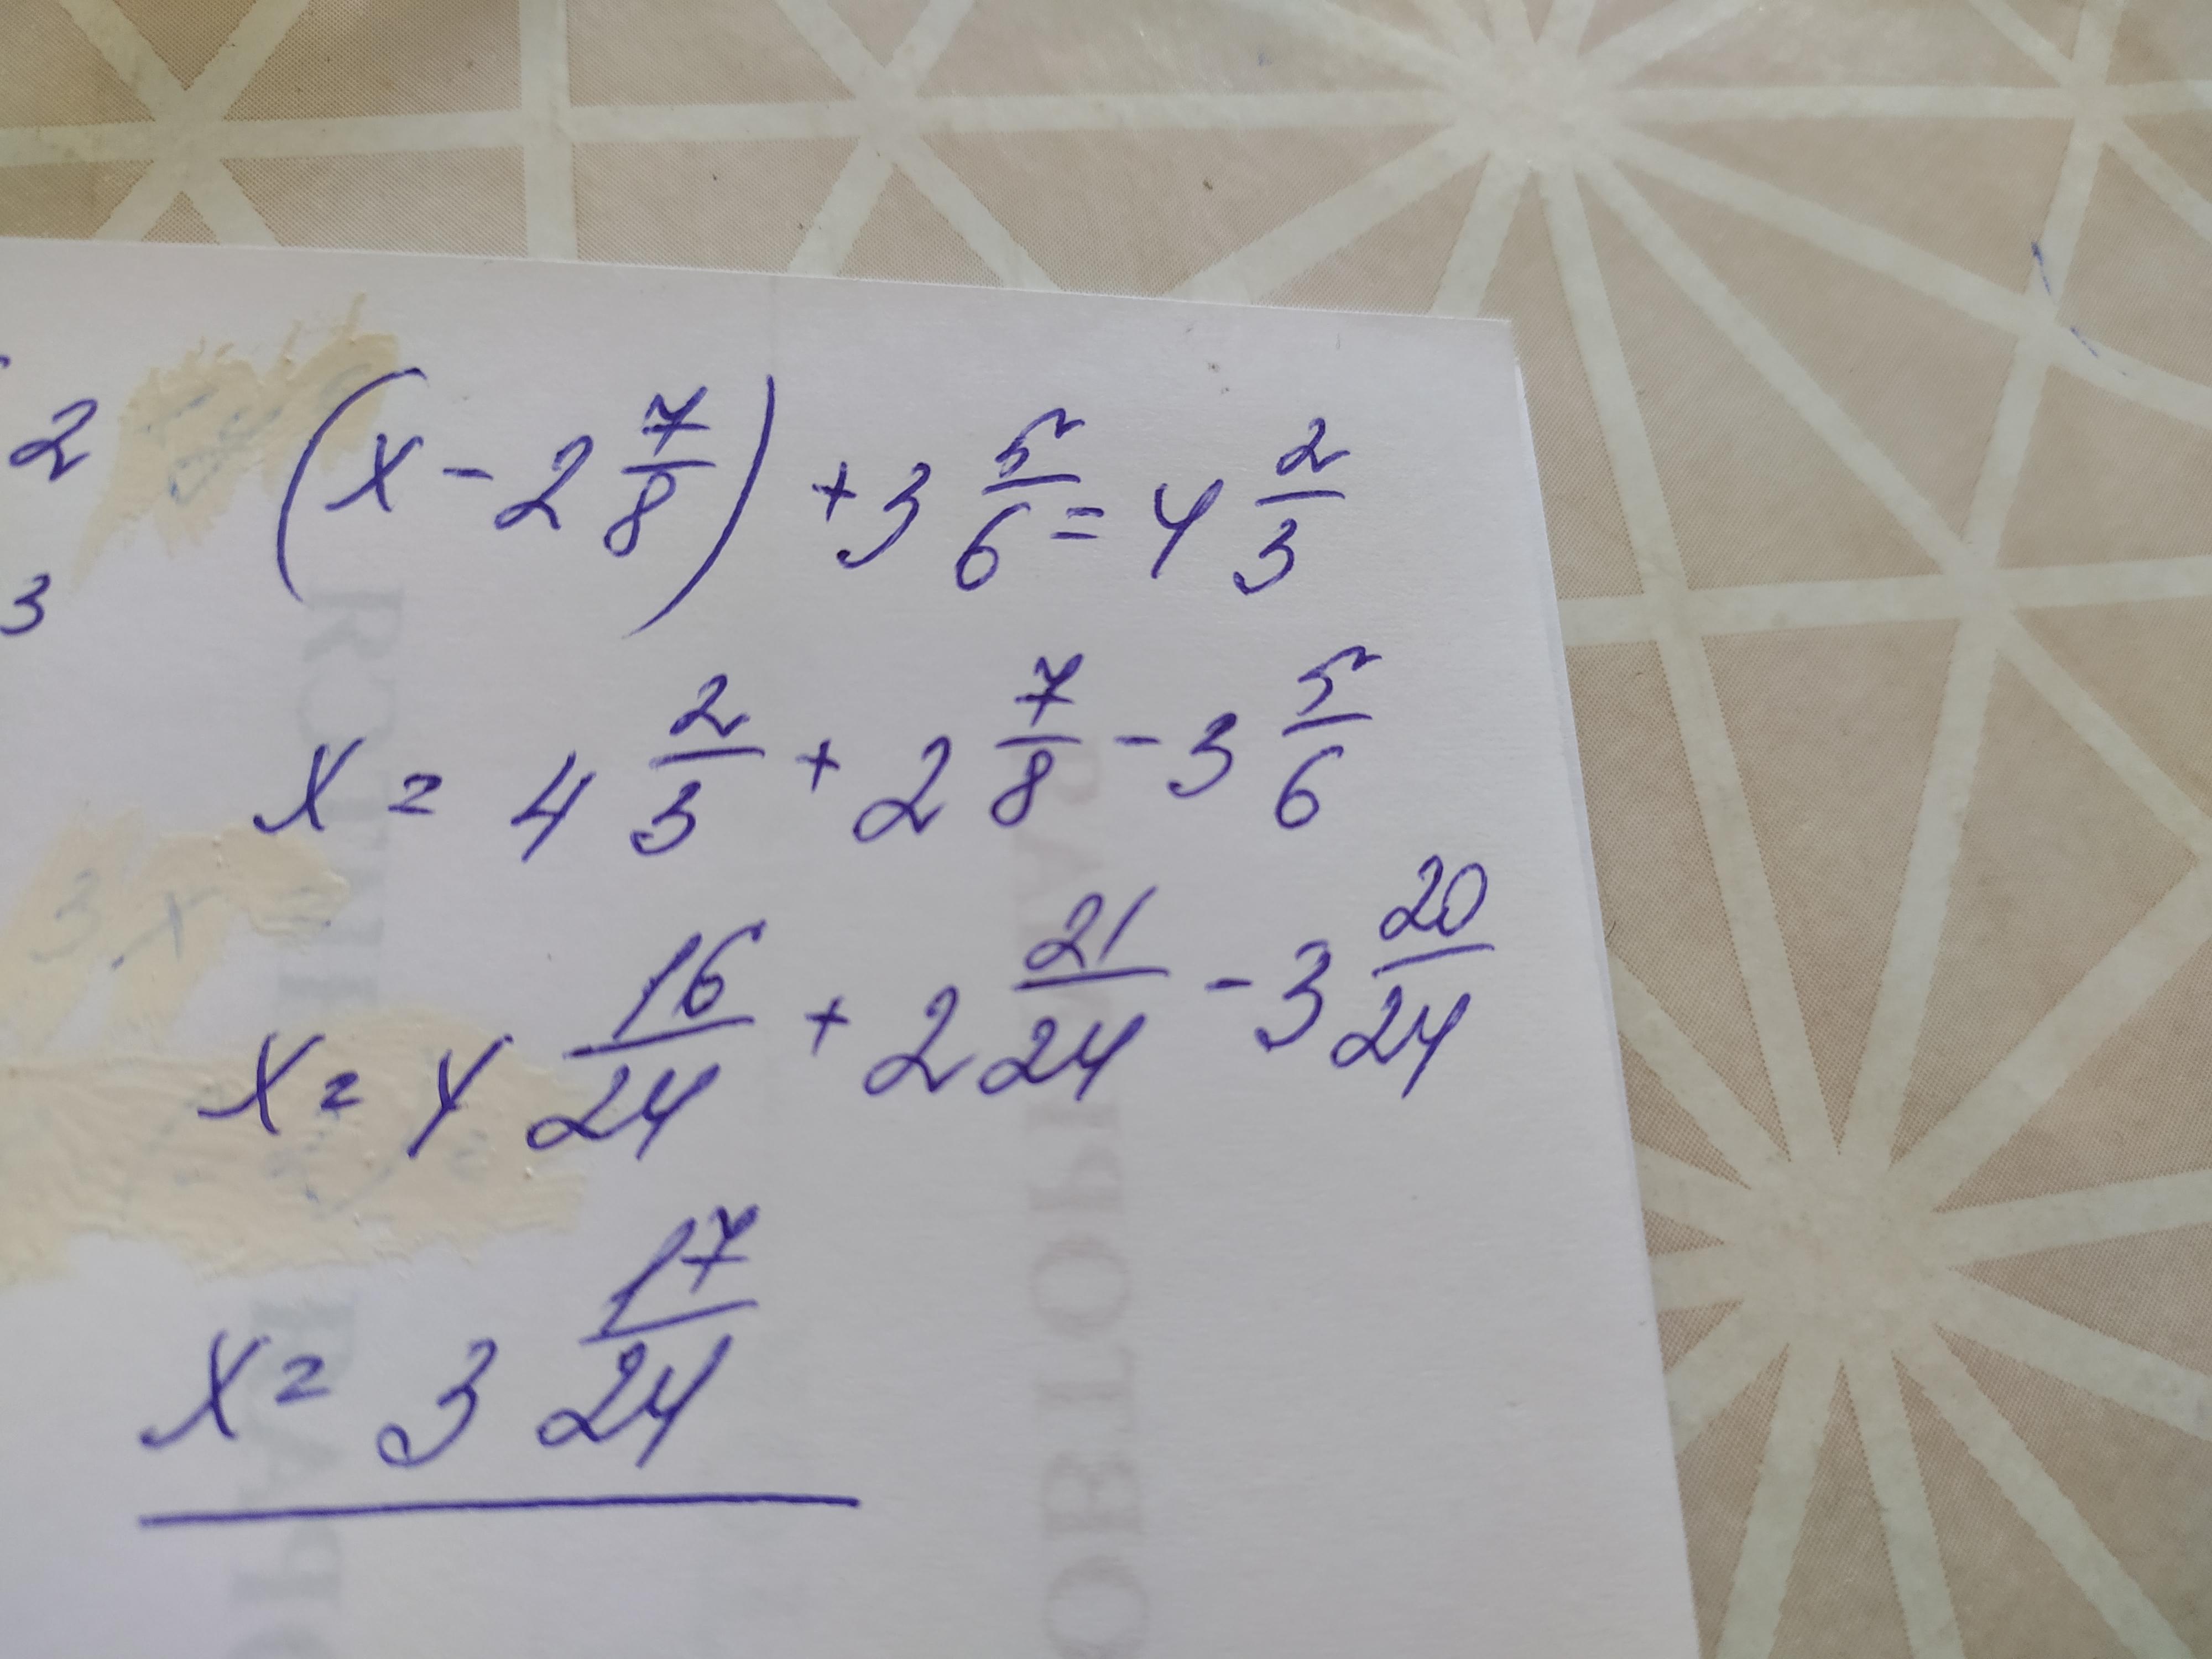 2 (x - 2 7/8) + 3 5/6 = 4 2/3
3
x = 4 2/3 + 2 7/8 - 3 5/6
x = 4 16/24 + 2 21/24 - 3 20/24
x = 3 17/24